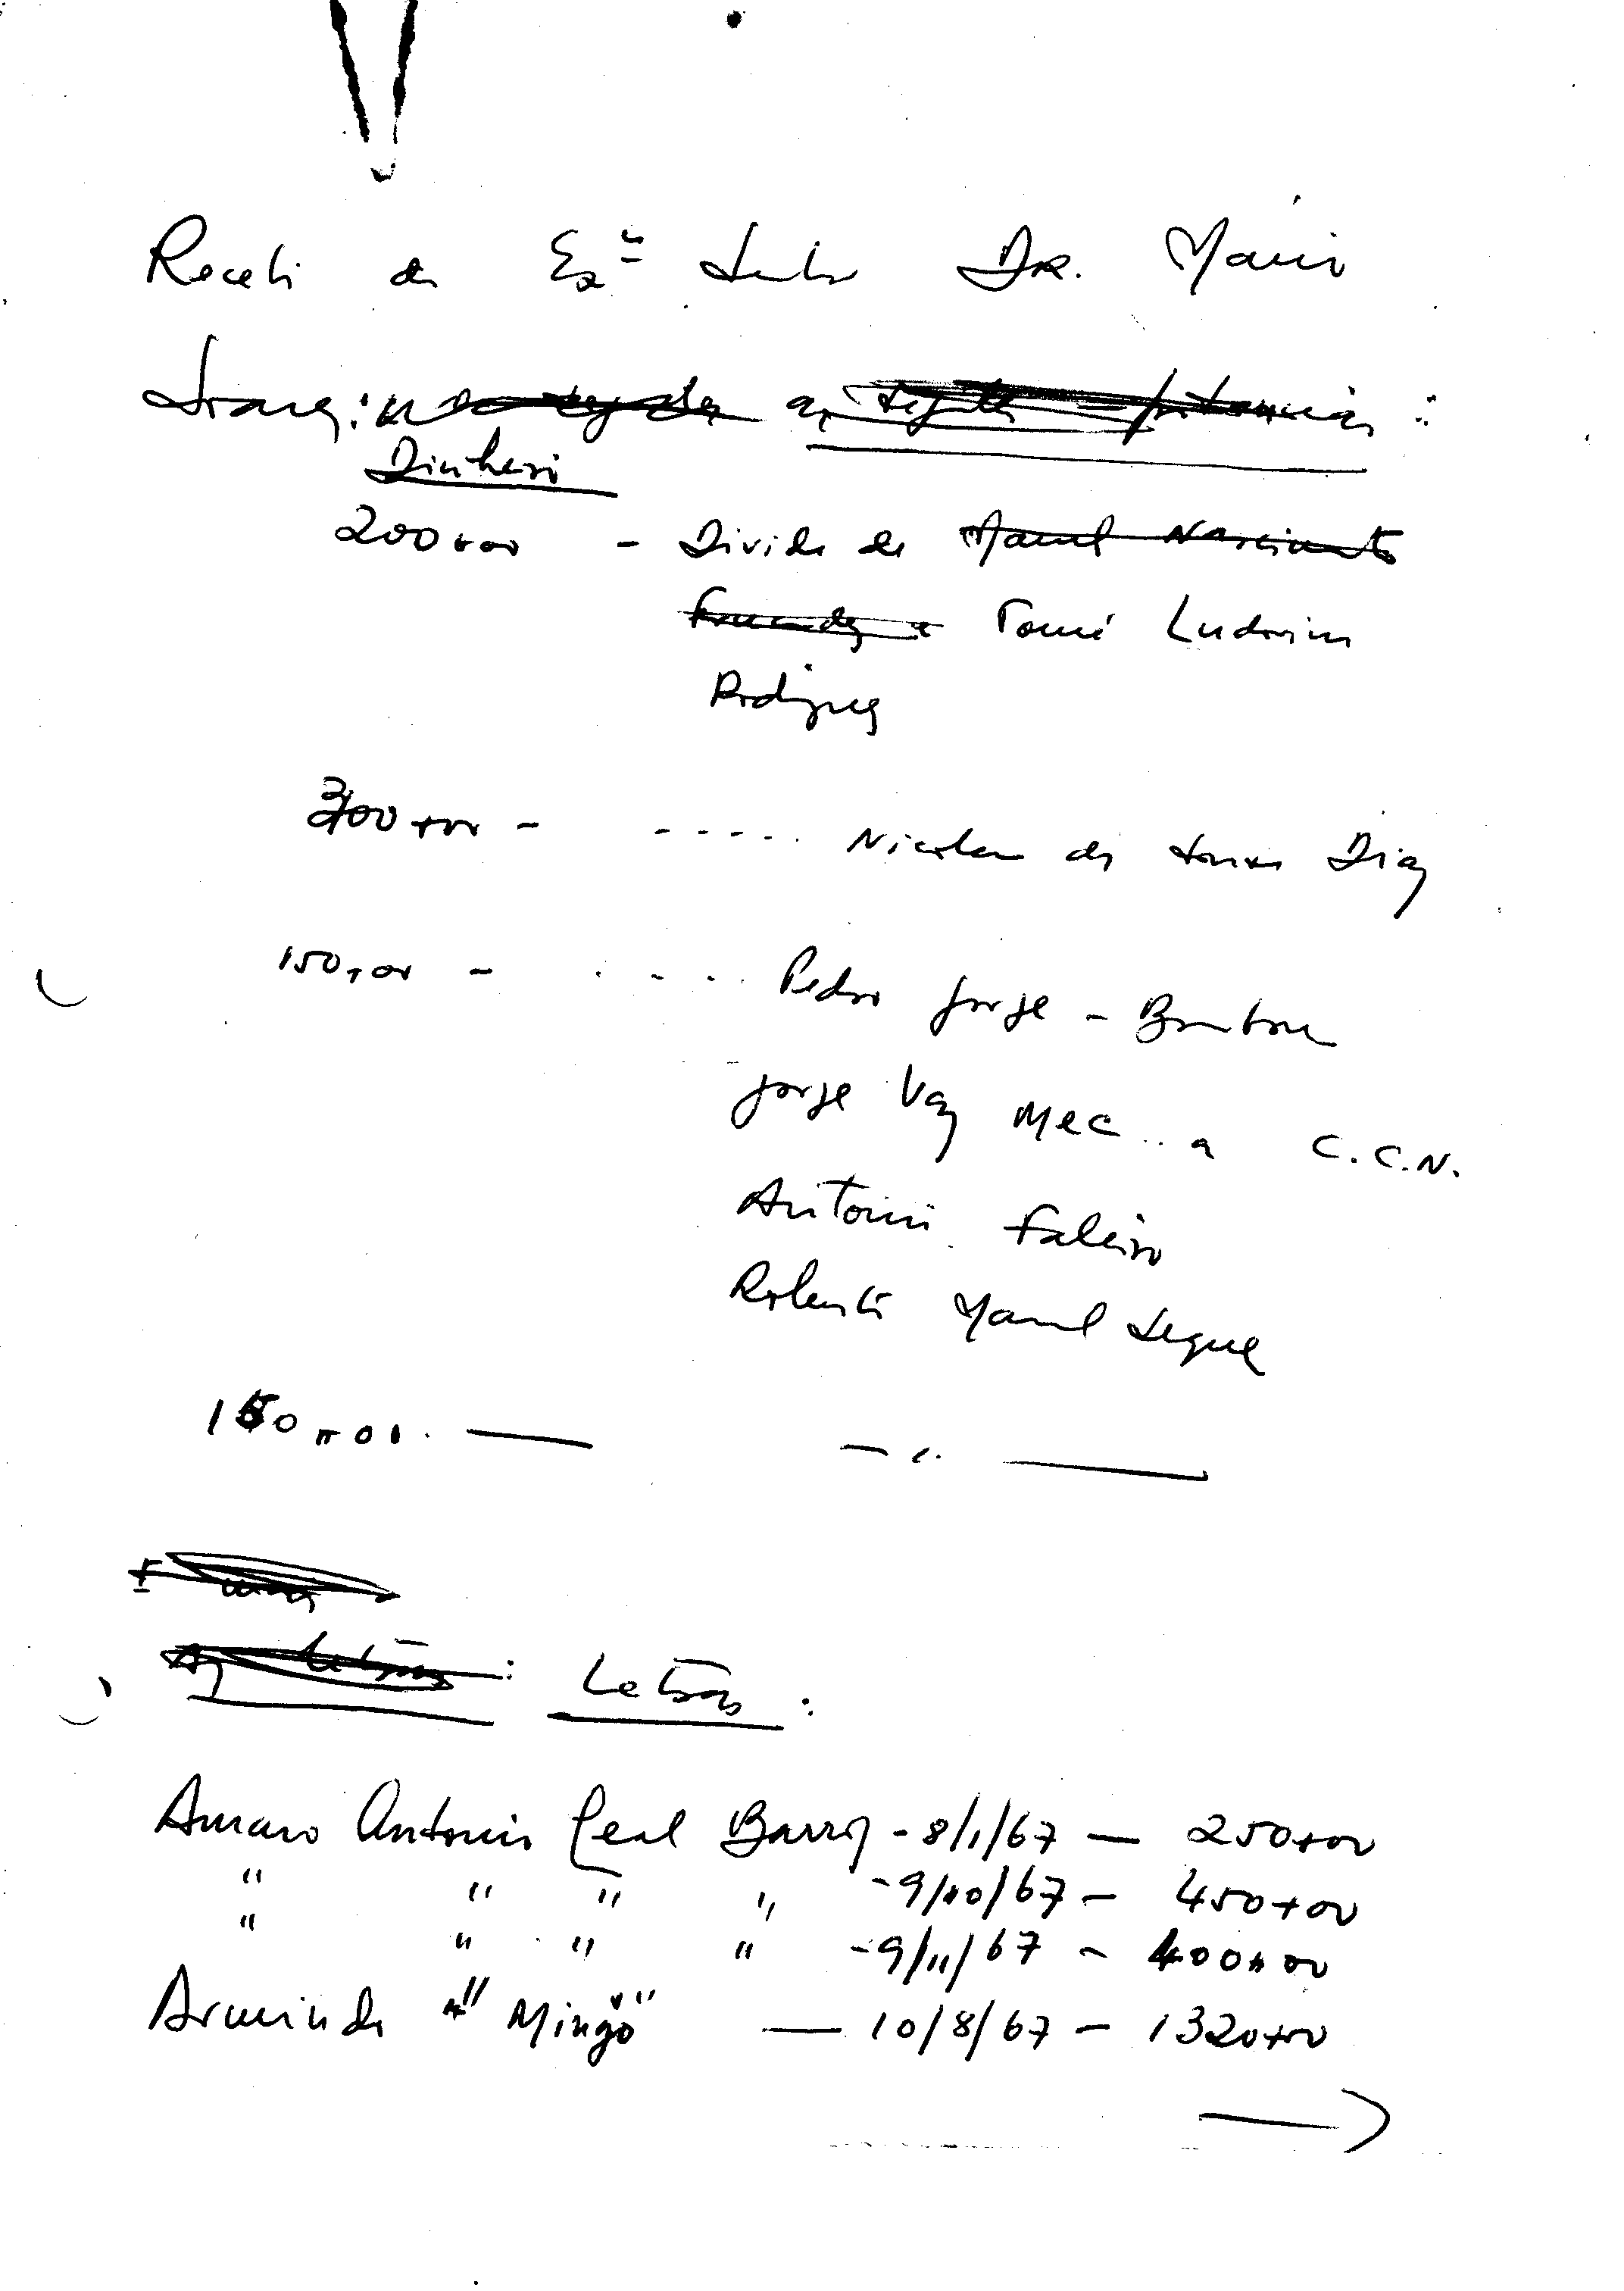 Recebi do Exº Senhor Dr. Mario
Soares:
Dinheiro
200+00 - Divida de Manuel Nascimento
Tomé Ludovino
Rodrigues
300+00 - ..... Nicolau de Sousa Dias
150,00 - .... Pedro Jorge - Bombom
Jorge Vaz Mec... a C.C.N.
Antonio Faleiro
Manuel Seque
150,00. — — ". —
As Letras: Letras:
Amaro Antonio Leal Barros - 8/1/67 — 250+00
" " " " - 9/10/67 - 450+00
" " " " - 9/11/67 - 400,00
Armindo "Mingo" — 10/8/67 - 1320+00